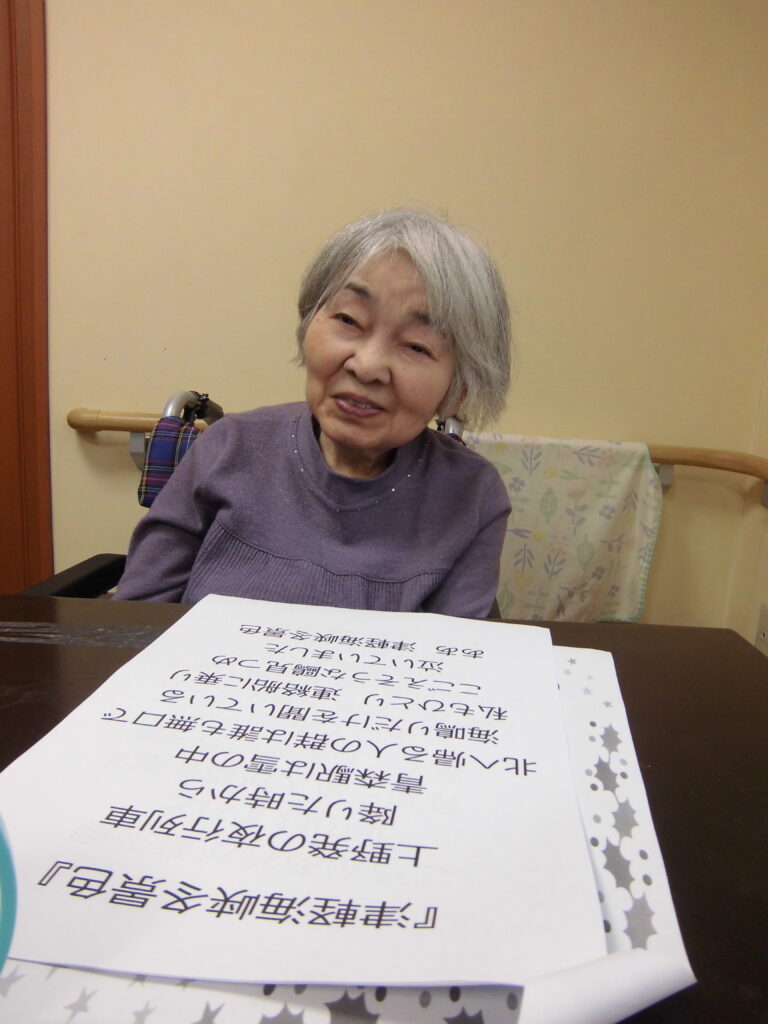 『津軽海峡冬景色』
上野発の夜行列車
降りた時から
青森駅は雪の中
北へ帰る人の群は誰も無口で
海鳴りだけを聞いている
私もひとり 連絡船に乗り
こごえそうな鷗見つめ
泣いていました
ああ 津軽海峡冬景色